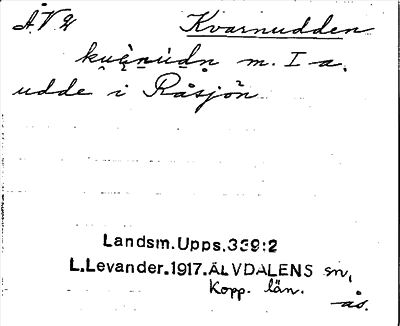 Å.V 21 Kvarnudden
kuɛ̀ṇúdṇ m. I a.
udde i Råsjön
Landsm.Upps.339:2
L.Levander.1917.ÄLVDALENS sn,
Kopp. län.
ås.